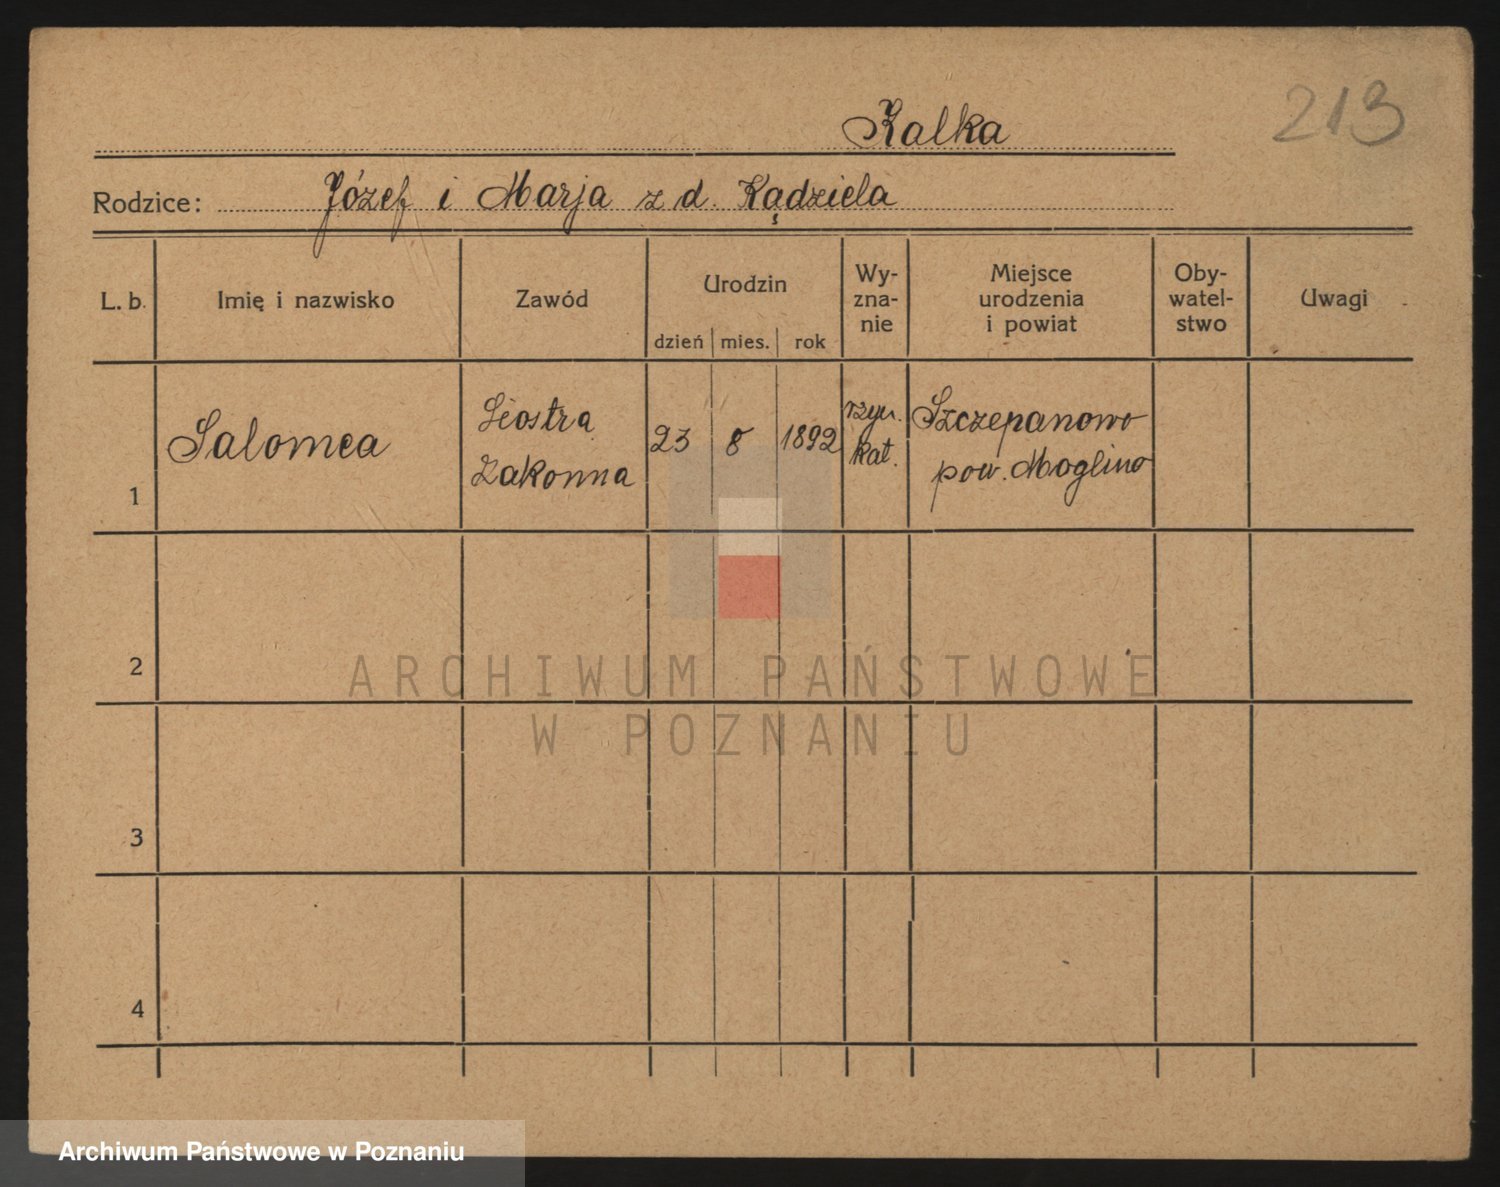 213
Kalka
Rodzice: Józef i Marja z d. Kądziela
L. b. Imię i nazwisko Zawód Urodzin dzień mies. rok Wy-znanie Miejsce urodzenia i powiat Oby-watel-stwo Uwagi
1 Salomea Siostra Zakonna 23 8 1892 rzym. kat. Szczepanowo pow. Moglino
2
3
4
ARCHIWUM PAŃSTWOWE
W POZNANIU
Archiwum Państwowe w Poznaniu